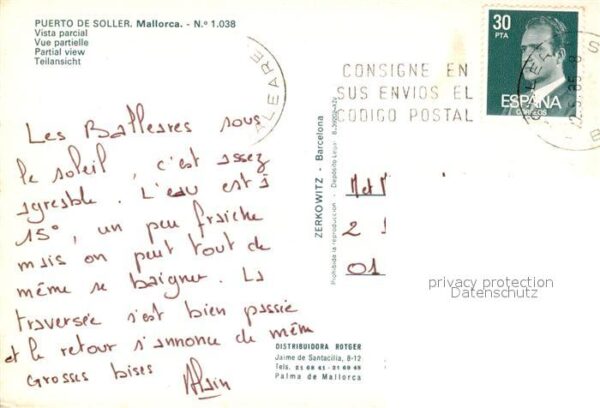 PUERTO DE SOLLER. Mallorca. - N.º 1.038
Vista parcial
Vue partielle
Partial view
Teilansicht
Les Balleares sous
le soleil, c'est assez
agreable. L'eau est à
15°, un peu fraiche
mais on peut tout de
même se baigner. La
traversée s'est bien passée
et le retour s'annonce de même
Grosses bises Alain
ZERKOWITZ - Barcelona
Prohibida la reproducción - Depósito Legal
DISTRIBUIDORA ROTGER
Jaime de Santacilia, 8-12
Palma de Mallorca
CONSIGNE EN
SUS ENVIOS EL
CODIGO POSTAL
BALEARE
30
PTA
ESPAÑA
CORREOS
2
01
privacy protection
Datenschutz